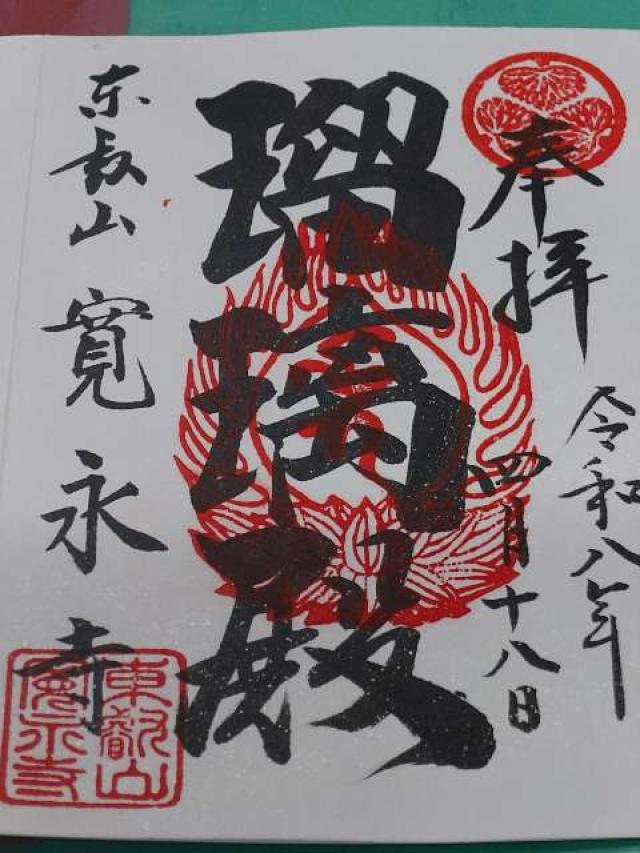 奉拝
令和八年
四月十八日
瑠璃殿
东叡山 寛永寺
東叡山
寛永寺